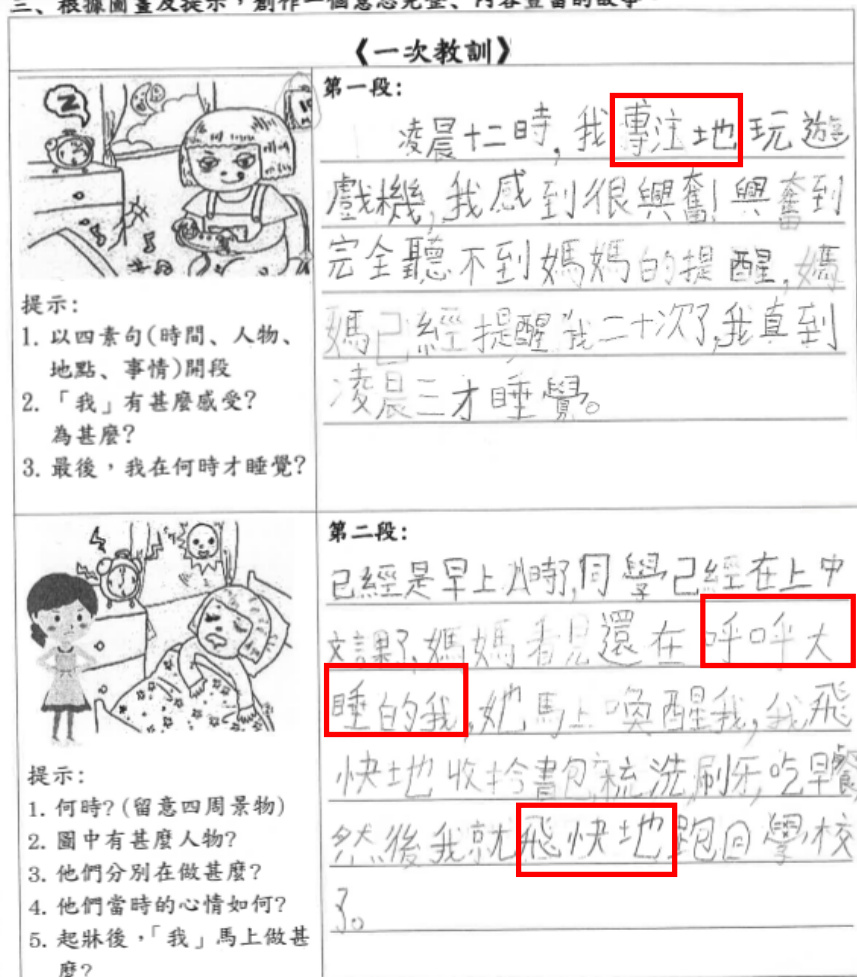 三、根據圖畫及提示,創作一個意思完整、內容豐富的故事。
《一次教訓》
Z
提示:
1. 以四素句(時間、人物、
地點、事情)開段
2. 「我」有甚麼感受?
為甚麼?
3. 最後,我在何時才睡覺?
第一段:
凌晨十二時,我專注地玩遊
戲機,我感到很興奮!興奮到
完全聽不到媽媽的提醒,媽
媽已經提醒我二十次了,我直到
凌晨三才睡覺。
提示:
1. 何時?(留意四周景物)
2. 圖中有甚麼人物?
3. 他們分別在做甚麼?
4. 他們當時的心情如何?
5. 起牀後,「我」馬上做甚
麼?
第二段:
已經是早上八時了,同學已經在上中
文課了,媽媽看見還在呼呼大
睡的我,她馬上喚醒我,我飛
快地收拾書包,梳洗,刷牙,吃早餐,
然後我就飛快地跑回學校
了。